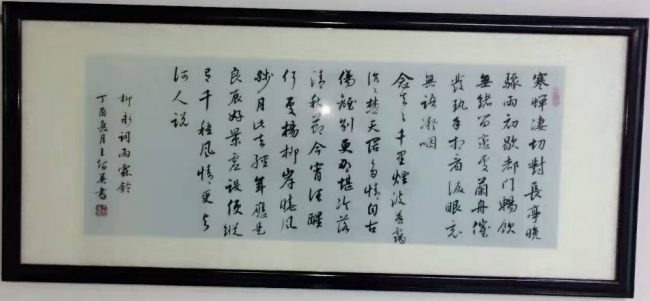 寒蟬凄切對長亭晚
驟雨初歇都門暢飲
無緒留戀處蘭舟催
發執手相看淚眼竟
無語凝咽
念去去千里煙波暮靄
沉沉楚天闊多情自古
傷離別更那堪冷落
清秋節今宵酒醒
何處楊柳岸曉風
殘月此去經年應是
良辰好景虛設便縱
有千種風情更與
何人說
柳永詞雨霖鈴
丁酉月王英書